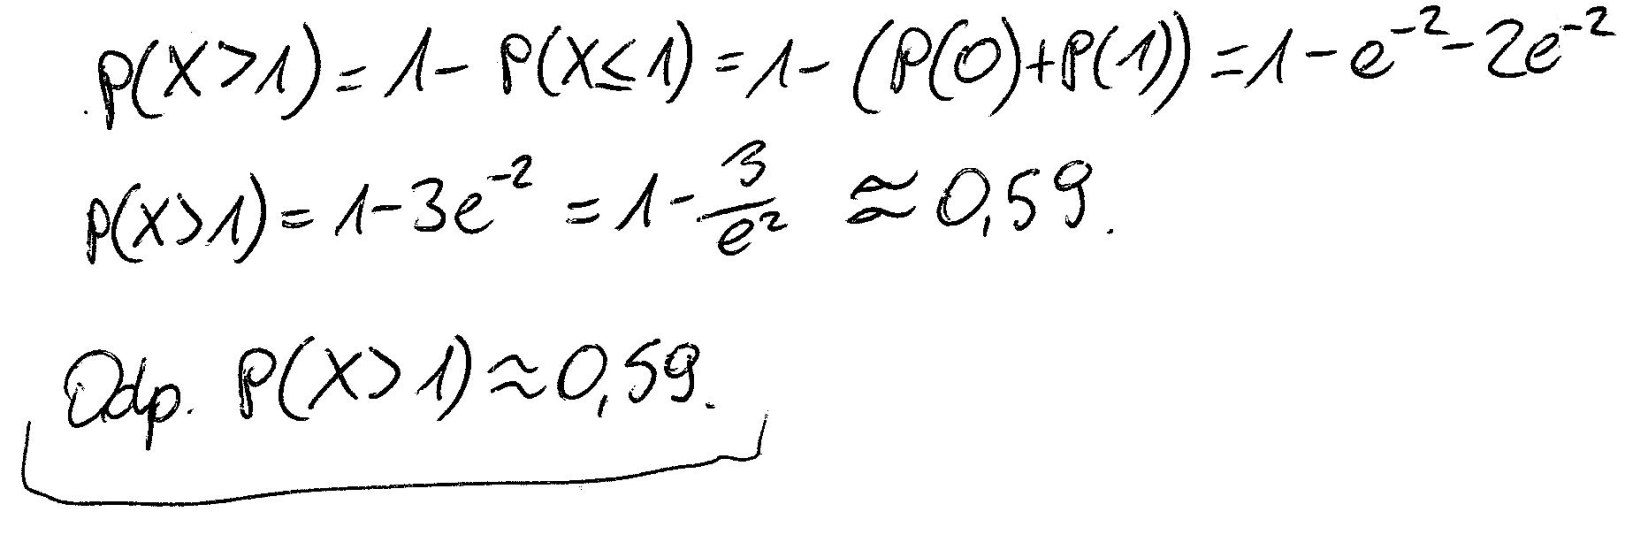 P(X>1)=1-P(X≤1)=1-(P(0)+P(1))=1-e⁻²-2e⁻²
P(X>1)=1-3e⁻²=1-3/e²≈0,59.
Odp. P(X>1)≈0,59.